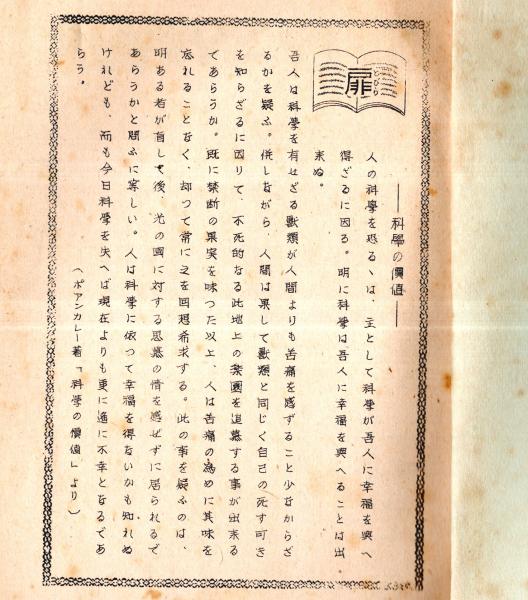 扉
とびら
── 科學の價値 ──
人の科學を恐るヽは、主として科學が吾人に幸福を興へ
得ざるに因る。明に科學は吾人に幸福を興へることは出
来ぬ。
吾人は科學を有せざる獸類が人間よりも苦痛を感ずること少なからざ
るかを疑ふ。併しながら、人間は果して獸類と同じく自己の死す可き
を知らざるに因りて、不死的なる此地上の楽園を追慕する事が出来る
であらうか。既に禁断の果実を味つた以上、人は苦痛の為めに其味を
忘れることなく、却つて常に之を回想希求する。此の事を疑ふのは、
明ある者が盲して後、光の国に対する思慕の情を感ぜずに居られるで
あらうかと問ふに等しい。人は科學に依つて幸福を得ないかも知れぬ
けれども、而も今日科學を失へば現在よりも更に遥に不幸となるであ
らう。
（ポアンカレー著「科學の價値」より）